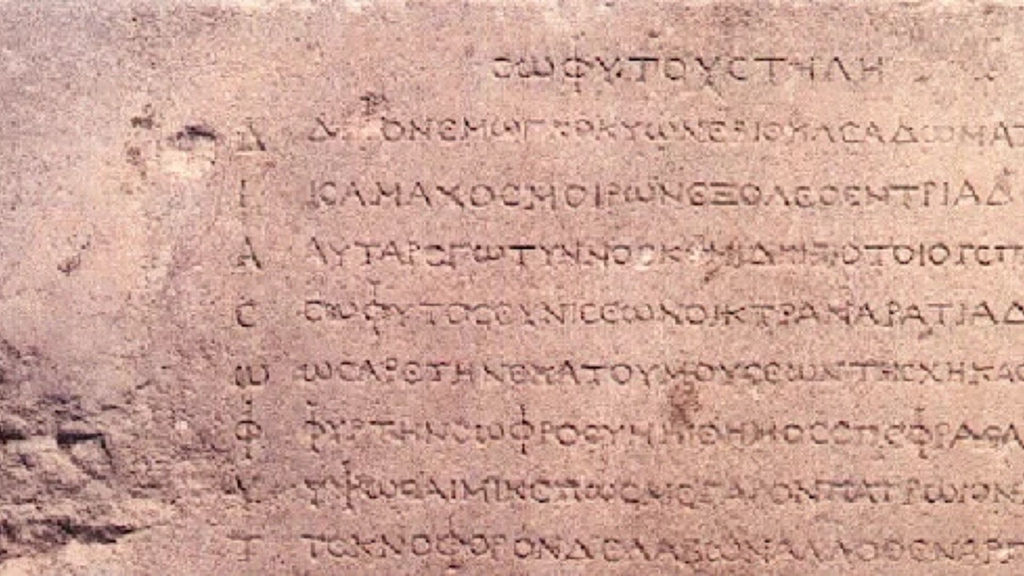 ϹΩΦΥΤΟΥϹΤΗΛΗ
Δ ΔΗΡΟΝΕΜΩΓΚΟΚΥΩΝΕΡΙΘΗΛΕΑΔΩΜΑΤ
Ι ΙϹΑΜΑΧΟϹΜΟΙΡΩΝΕΞΟΛΕϹΕΝΤΡΙΑΔ
Α ΑΥΤΑΡΕΓΩΤΥΝΝΟϹΚΟΜΙΔΗΙΒΙΟΤΟΙΟΤΕΠ
Ϲ ϹΩΦΥΤΟϹΕΥΝΙϹΕΩΝΟΙΚΤΡΑΝΑΡΑΤΙΑΔ
Ω ΩϹΑΡΕΤΗΝΕΚΑΤΟΥΜΟΥϹΕΩΝΤΗϹΧΗΚΑϹ
Φ ΦΥΡΤΗΝϹΩΦΡΟϹΥΝΗΙΘΗΜΟϹΕΠΕΦΡΑϹΑ
Υ ΥΨΩϹΑΙΜΙΚΕΠΩϹΜΕΓΑΡΟΝΠΑΤΡΩΙΟΝ
Τ ΤΕΚΝΟΦΟΡΟΝΔΕΛΑΒΩΝΑΛΛΟΘΕΝΑΡΓ